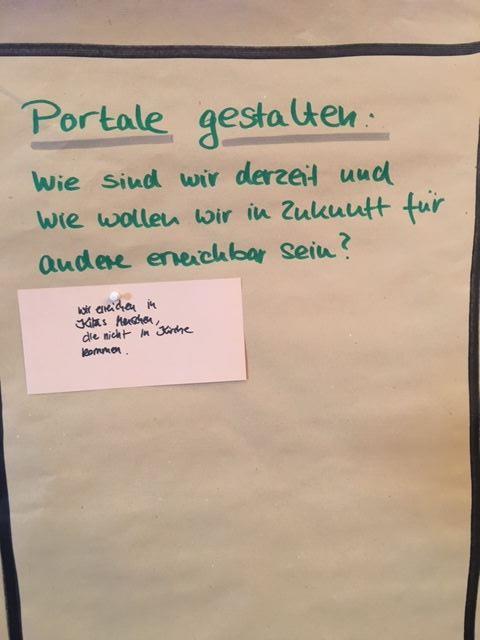 Portale gestalten:
Wie sind wir derzeit und
wie wollen wir in Zukunft für
andere erreichbar sein?
Wir erreichen in
Kitas Menschen,
die nicht in Kirche
kommen.